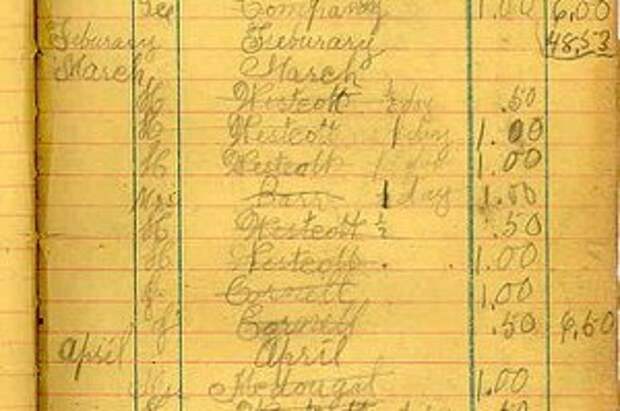 Company 1.00 6.00
Feburary Feburary 48,53
March March
H Westcott ½ day .50
H Westcott 1 day 1.00
H Westcott 1 day 1.00
Mrs Barr 1 day 1.00
H Westcott ½ .50
H Westcott 1.00
J. Cornell 1.00
J Cornell .50 6,50
April April
McDougal 1.00